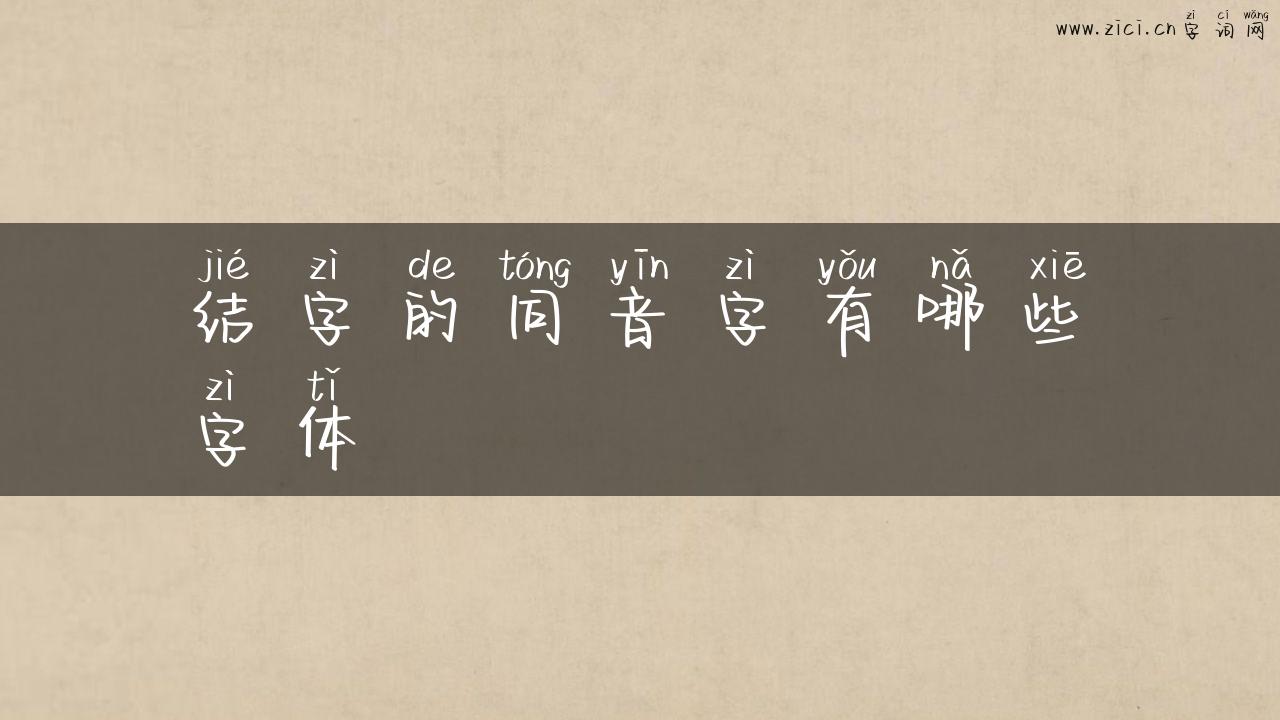 zì cí wǎng
www.zici.cn 字 词 网
jié zì de tóng yīn zì yǒu nǎ xiē
结 字 的 同 音 字 有 哪 些
zì tǐ
字 体